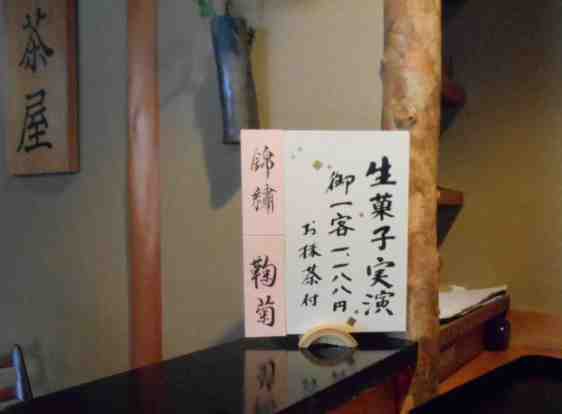 茶屋
生菓子実演
御一客一、一八八円
お抹茶付
錦繍
鞠菊